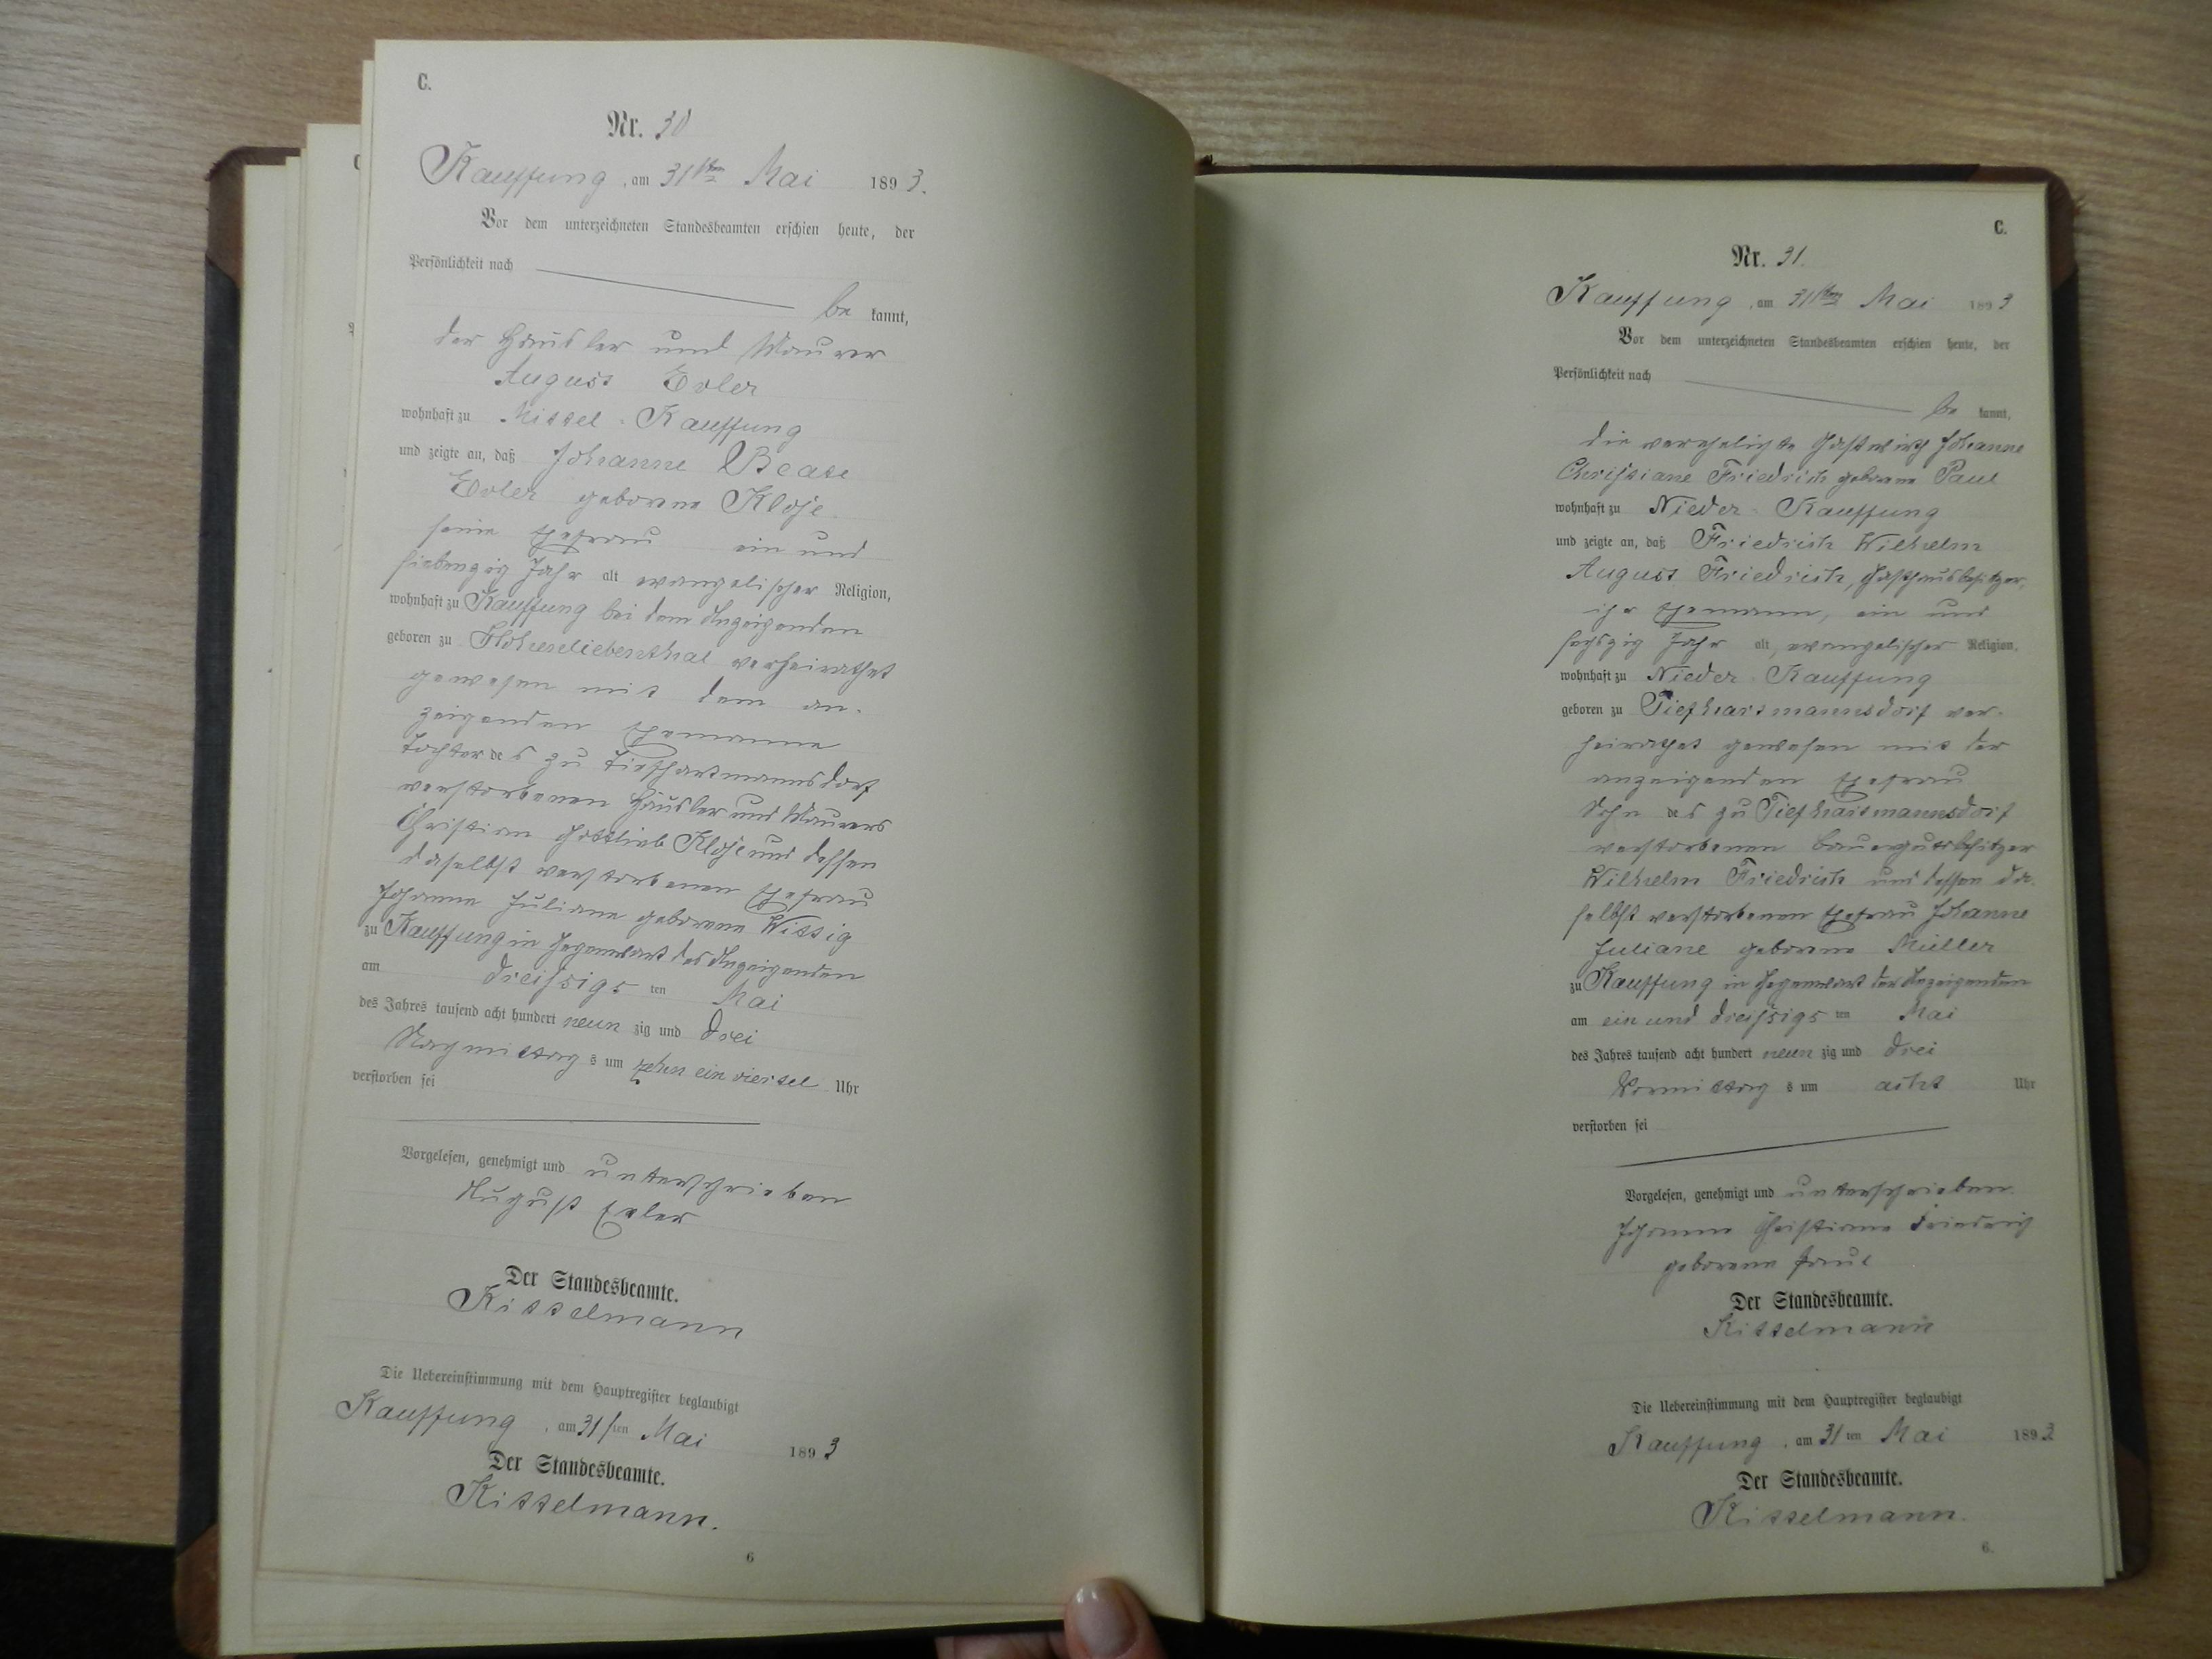 C.
Nr. 30
Kauffung, am 31ten Mai 1893.
Vor dem unterzeichneten Standesbeamten erschien heute, der
Persönlichkeit nach
bekannt,
der Häusler und Maurer
August
wohnhaft zu Mittel-Kauffung
und zeigte an, daß Johanne Beate
geborene Klose
seine Ehefrau ein und
siebenzig Jahr alt evangelischer Religion,
wohnhaft zu Kauffung bei dem Anzeigenden
geboren zu Hohenliebenthal verheirathet
gewesen mit dem an-
zeigenden Ehemanne
Tochter des zu Tiefhartmannsdorf
verstorbenen Häusler und Maurers
Christian Gottlieb Klose und dessen
daselbst verstorbenen Ehefrau
Johanne Juliane geborene Wittig
zu Kauffung in Gegenwart des Anzeigenden
am dreißigsten Mai
des Jahres tausend acht hundert neunzig und drei
Nachmittags um zehn ein viertel Uhr
verstorben sei
Vorgelesen, genehmigt und unterschrieben
August
Der Standesbeamte.
Kittelmann
Die Uebereinstimmung mit dem Hauptregister beglaubigt
Kauffung, am 31ten Mai 1893
Der Standesbeamte.
Kittelmann.
6
C.
Nr. 31.
Kauffung, am 31ten Mai 1893
Vor dem unterzeichneten Standesbeamten erschien heute, der
Persönlichkeit nach
bekannt,
die verehelichte Gastwirth Johanne
Christiane Friedrich geborene Paul
wohnhaft zu Nieder-Kauffung
und zeigte an, daß Friedrich Wilhelm
August Friedrich, Gasthausbesitzer,
ihr Ehemann, ein und
sechszig Jahr alt, evangelischer Religion,
wohnhaft zu Nieder-Kauffung
geboren zu Tiefhartmannsdorf ver-
heirathet gewesen mit der
anzeigenden Ehefrau
Sohn des zu Tiefhartmannsdorf
verstorbenen Bauergutsbesitzer
Wilhelm Friedrich und dessen da-
selbst verstorbenen Ehefrau Johanne
Juliane geborene Müller
zu Kauffung in Gegenwart der Anzeigenden
am ein und dreißigsten Mai
des Jahres tausend acht hundert neunzig und drei
Vormittags um acht Uhr
verstorben sei
Vorgelesen, genehmigt und unterschrieben.
Johanne Christiane Friedrich
geborene Paul
Der Standesbeamte.
Kittelmann
Die Uebereinstimmung mit dem Hauptregister beglaubigt
Kauffung, am 31ten Mai 1893
Der Standesbeamte.
Kittelmann.
6.